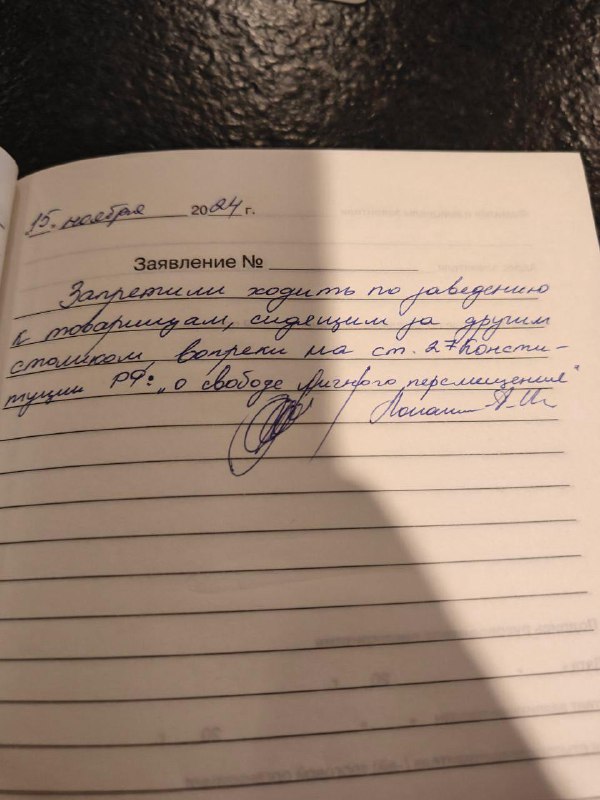 15. ноября 2024 г.
Заявление №
Запретили ходить по заведению
к товарищам, сидящим за другим
столиком, вопреки на ст. 27 Консти-
туции РФ: „о свободе личного перемещения"